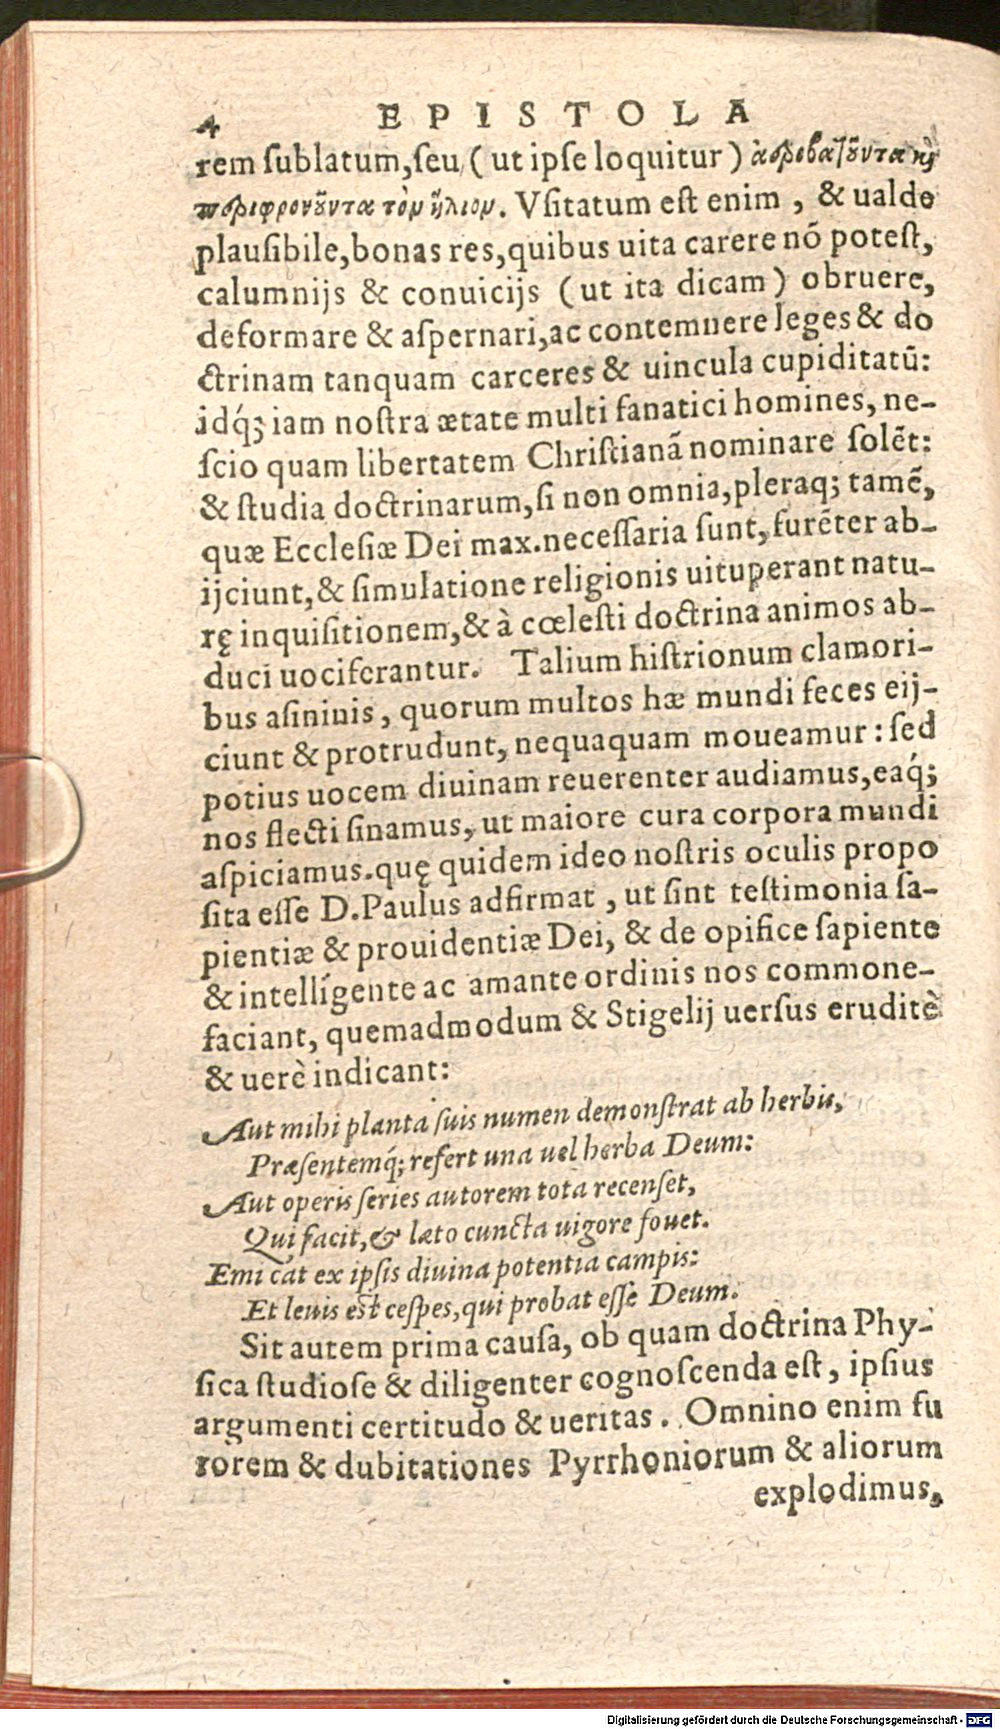 4 EPISTOLA
rem ſublatum, ſeu (ut ipſe loquitur) ἀεροβατοῦντα καὶ
περιφρονοῦντα τὸν ἥλιον. Vſitatum eſt enim, & ualde
plauſibile, bonas res, quibus uita carere nõ poteſt,
calumnijs & conuicijs (ut ita dicam) obruere,
deformare & aſpernari, ac contemnere leges & do
ctrinam tanquam carceres & uincula cupiditatũ:
idq́; iam noſtra ætate multi fanatici homines, ne-
ſcio quam libertatem Chriſtianã nominare ſolẽt:
& ſtudia doctrinarum, ſi non omnia, pleraq; tamẽ,
quæ Eccleſiæ Dei max. neceſſaria ſunt, furẽter ab-
ijciunt, & ſimulatione religionis uituperant natu-
rę inquiſitionem, & à cœleſti doctrina animos ab-
duci uociferantur. Talium hiſtrionum clamori-
bus aſininis, quorum multos hæ mundi feces eij-
ciunt & protrudunt, nequaquam moueamur: ſed
potius uocem diuinam reuerenter audiamus, eaq́;
nos flecti ſinamus, ut maiore cura corpora mundi
aſpiciamus. quę quidem ideo noſtris oculis propo
ſita eſſe D. Paulus adfirmat, ut ſint teſtimonia ſa-
pientiæ & prouidentiæ Dei, & de opifice ſapiente
& intelligente ac amante ordinis nos commone-
faciant, quemadmodum & Stigelij uerſus eruditè
& uerè indicant:
Aut mihi planta ſuis numen demonſtrat ab herbis,
Præſentemq́; refert una uel herba Deum:
Aut operis ſeries autorem tota recenſet,
Qui facit, & læto cuncta uigore fouet.
Emicat ex ipſis diuina potentia campis:
Et leuis eſt ceſpes, qui probat eſſe Deum.
Sit autem prima cauſa, ob quam doctrina Phy-
ſica ſtudioſe & diligenter cognoſcenda eſt, ipſius
argumenti certitudo & ueritas. Omnino enim fu
rorem & dubitationes Pyrrhoniorum & aliorum
explodimus,
Digitalisierung gefördert durch die Deutsche Forschungsgemeinschaft - DFG